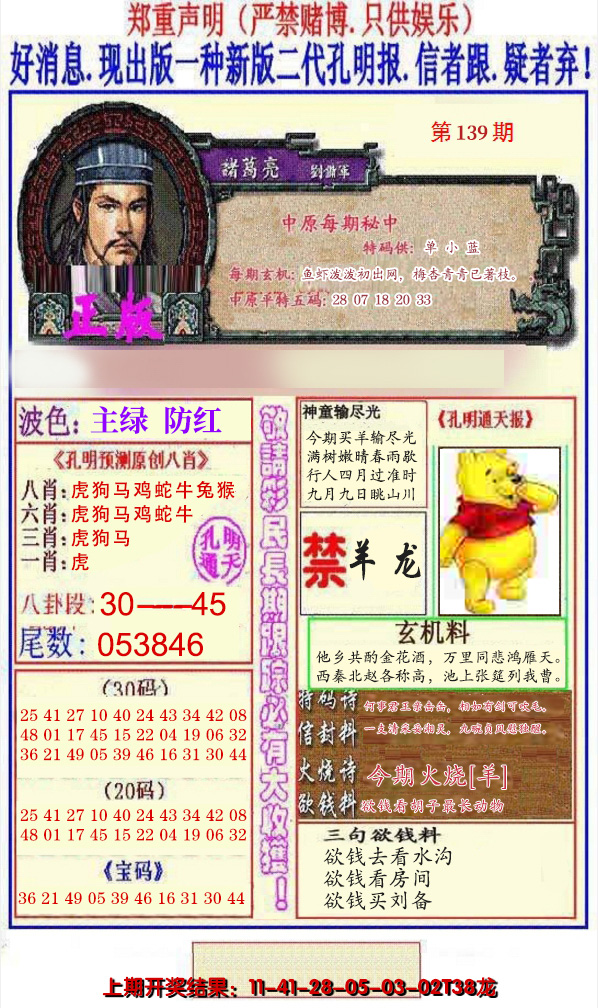 郑重声明（严禁赌博.只供娱乐）
好消息.现出版一种新版二代孔明报.信者跟.疑者弃!
第139期
諸葛亮 劉備軍
中原每期秘中
特码供: 单小蓝
每期玄机: 鱼虾泼泼初出网，梅杏青青已著枝。
中原平特五码: 28 07 18 20 33
正版
波色: 主绿 防红
《孔明预测原创八肖》
八肖:虎狗马鸡蛇牛兔猴
六肖:虎狗马鸡蛇牛
三肖:虎狗马
一肖:虎
孔明
通天
八卦段:30-----45
尾数: 053846
(30码)
25 41 27 10 40 24 43 34 42 08
48 01 17 45 15 22 04 19 06 32
36 21 49 05 39 46 16 31 30 44
(20码)
25 41 27 10 40 24 43 34 42 08
48 01 17 45 15 22 04 19 06 32
《宝码》
36 21 49 05 39 46 16 31 30 44
敬請彩民長期跟踪必有大收獲!
神童输尽光
今期买羊输尽光
满树嫩晴春雨歇
行人四月过准时
九月九日眺山川
《孔明通天报》
禁羊龙
玄机料
他乡共酌金花酒，万里同悲鸿雁天。
西秦北赵各称高，池上张筵列我曹。
特码诗 何事君王亲击缶，相如有剑可吹毛。
信封料
火烧诗 今期火烧[羊]
欲钱料 欲钱看胡子最长动物
三句欲钱料
欲钱去看水沟
欲钱看房间
欲钱买刘备
上期开奖结果：11-41-28-05-03-02T38龙